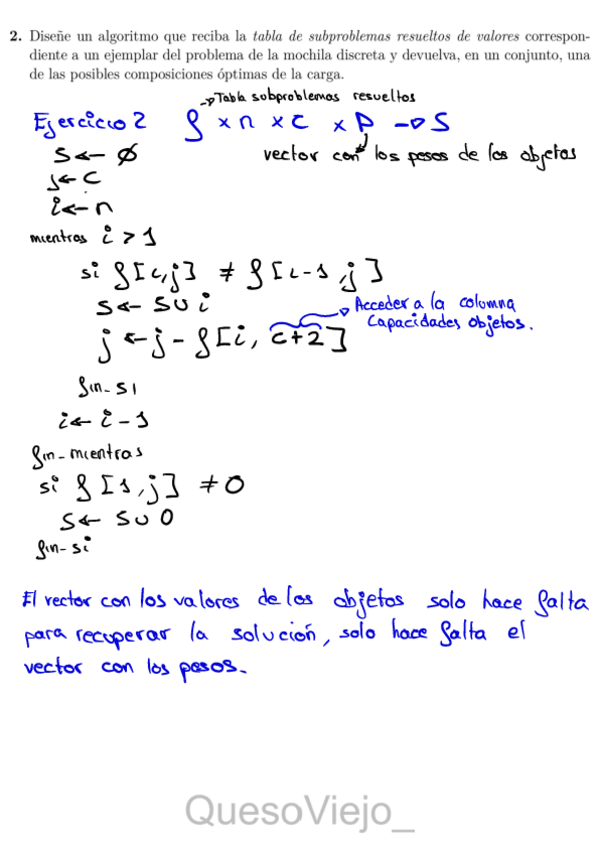 2. Diseñe un algoritmo que reciba la tabla de subproblemas resueltos de valores correspon-
diente a un ejemplar del problema de la mochila discreta y devuelva, en un conjunto, una
de las posibles composiciones óptimas de la carga.
→Tabla subproblemas resueltos
Ejercicio 2 f × n × c × P → S
S ← ∅ vector con los pesos de los objetos
j ← c
i ← n
mientras i > 1
si f[i,j] ≠ f[i-1,j]
S ← S ∪ i
→ Acceder a la columna
Capacidades objetos.
j ← j - f[i, c+2]
fin-si
i ← i - 1
fin-mientras
si f[1,j] ≠ 0
S ← S ∪ 0
fin-si
El vector con los valores de los objetos solo hace falta
para recuperar la solución, solo hace falta el
vector con los pesos.
QuesoViejo_